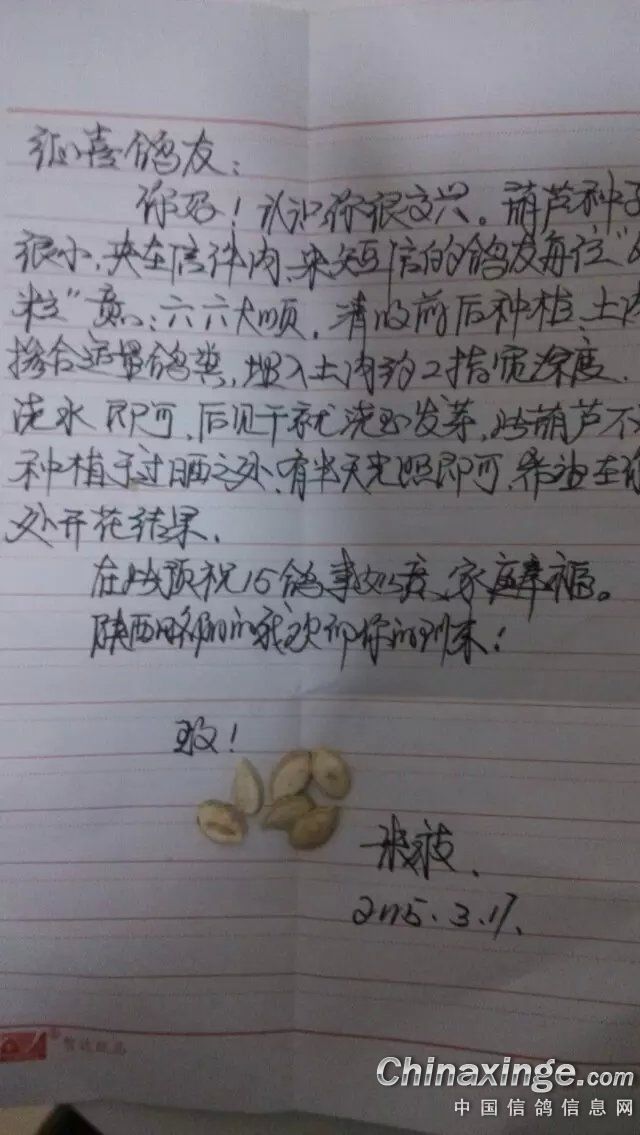 鸽友：
你好！认识你很高兴。葫芦种子
很小，夹在信件内，来短信的鸽友每位“
粒”意：六六大顺，清明前后种植，土内
掺合适量鸽粪，埋入土内约2指宽深度，
浇水即可，后见干就浇至发芽，此葫芦不
种植于过晒之处，有半天光照即可，希望在你
处开花结果。
在此预祝15鸽事如意、家庭幸福。
陕西的我欢迎你的到来！
致！
2015.3.17.
智达纸品
Chinaxinge.com
中国信鸽信息网